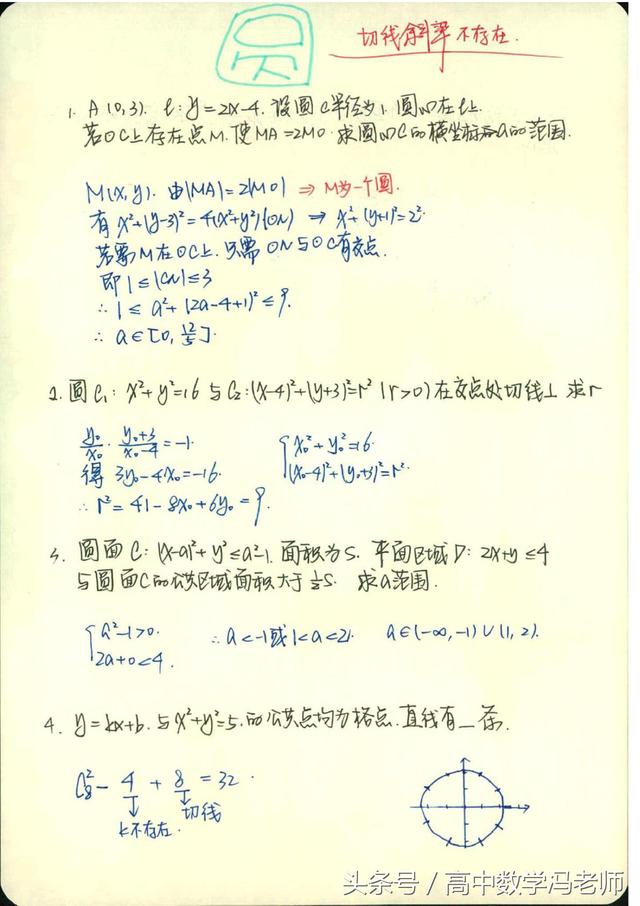 切线斜率不存在.
1. A(0,3). l: y=2x-4. 设圆C半径为1. 圆心在l上.
若⊙C上存在点M. 使MA=2MO. 求圆心C的横坐标a的范围.
M(x,y). 由|MA|=2|MO| ⇒ M为一个圆.
有 x²+(y-3)²=4(x²+y²)(⊙N) ⇒ x²+(y+1)²=2².
若需M在⊙C上. 只需⊙N与⊙C有交点.
即1≤|CN|≤3
∴ 1≤a²+(2a-4+1)²≤9.
∴ a∈[0, 12/5].
2. 圆C₁: x²+y²=16 与C₂:(x-4)²+(y+3)²=r² (r>0)在交点处切线⊥ 求r
y₀/x₀ · (y₀+3)/(x₀-4) = -1. { x₀²+y₀²=16.
得 3y₀-4x₀=-16. (x₀-4)²+(y₀+3)²=r².
∴ r²=41-8x₀+6y₀=9.
3. 圆面C: (x-a)²+y²≤a²-1. 面积为S. 平面区域D: 2x+y≤4
与圆面C的公共区域面积大于½S. 求a范围.
{ a²-1>0. ∴ a<-1或1<a<2. a∈(-∞,-1)∪(1,2).
2a+0<4.
4. y=kx+b. 与x²+y²=5.的公共点均为格点. 直线有__条.
C₈² - 4 + 8 = 32.
↓ ↓
k不存在. 切线
头条号 / 高中数学冯老师